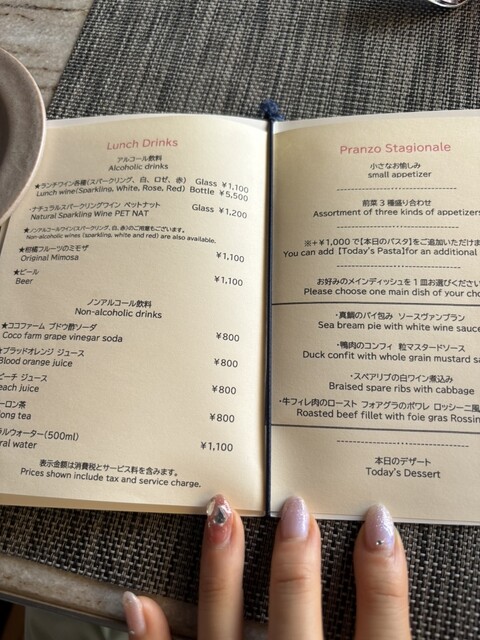 Lunch Drinks
アルコール飲料
Alcoholic drinks
★ランチワイン各種(スパークリング、白、ロゼ、赤) Glass ¥1,100
Lunch wine(Sparkling, White, Rose, Red) Bottle ¥5,500
・ナチュラルスパークリングワイン ペットナット Glass ¥1,200
Natural Sparkling Wine PET NAT
★ノンアルコールワイン(スパークリング,白,赤)のご用意もございます。
Non-alcoholic wines (sparkling, white and red) are also available.
★柑橘フルーツのミモザ ¥1,100
Original Mimosa
★ビール ¥1,100
Beer
ノンアルコール飲料
Non-alcoholic drinks
★ココファーム ブドウ酢ソーダ ¥800
Coco farm grape vinegar soda
★ブラッドオレンジ ジュース ¥800
Blood orange juice
ピーチ ジュース ¥800
each juice
ーロン茶 ¥800
ong tea
ラルウォーター(500ml) ¥1,100
ral water
表示金額は消費税とサービス料を含みます。
Prices shown include tax and service charge.
Pranzo Stagionale
小さなお愉しみ
small appetizer
前菜3種盛り合わせ
Assortment of three kinds of appetizers
※+¥1,000で【本日のパスタ】をご追加いただけま
You can add 【Today's Pasta】for an additional
お好みのメインディッシュを1皿お選びください
Please choose one main dish of your cho
・真鯛のパイ包み ソースヴァンブラン
Sea bream pie with white wine sauce
・鴨肉のコンフィ 粒マスタードソース
Duck confit with whole grain mustard sa
・スペアリブの白ワイン煮込み
Braised spare ribs with cabbage
・牛フィレ肉のロースト フォアグラのポワレ ロッシーニ風
Roasted beef fillet with foie gras Rossin
本日のデザート
Today's Dessert